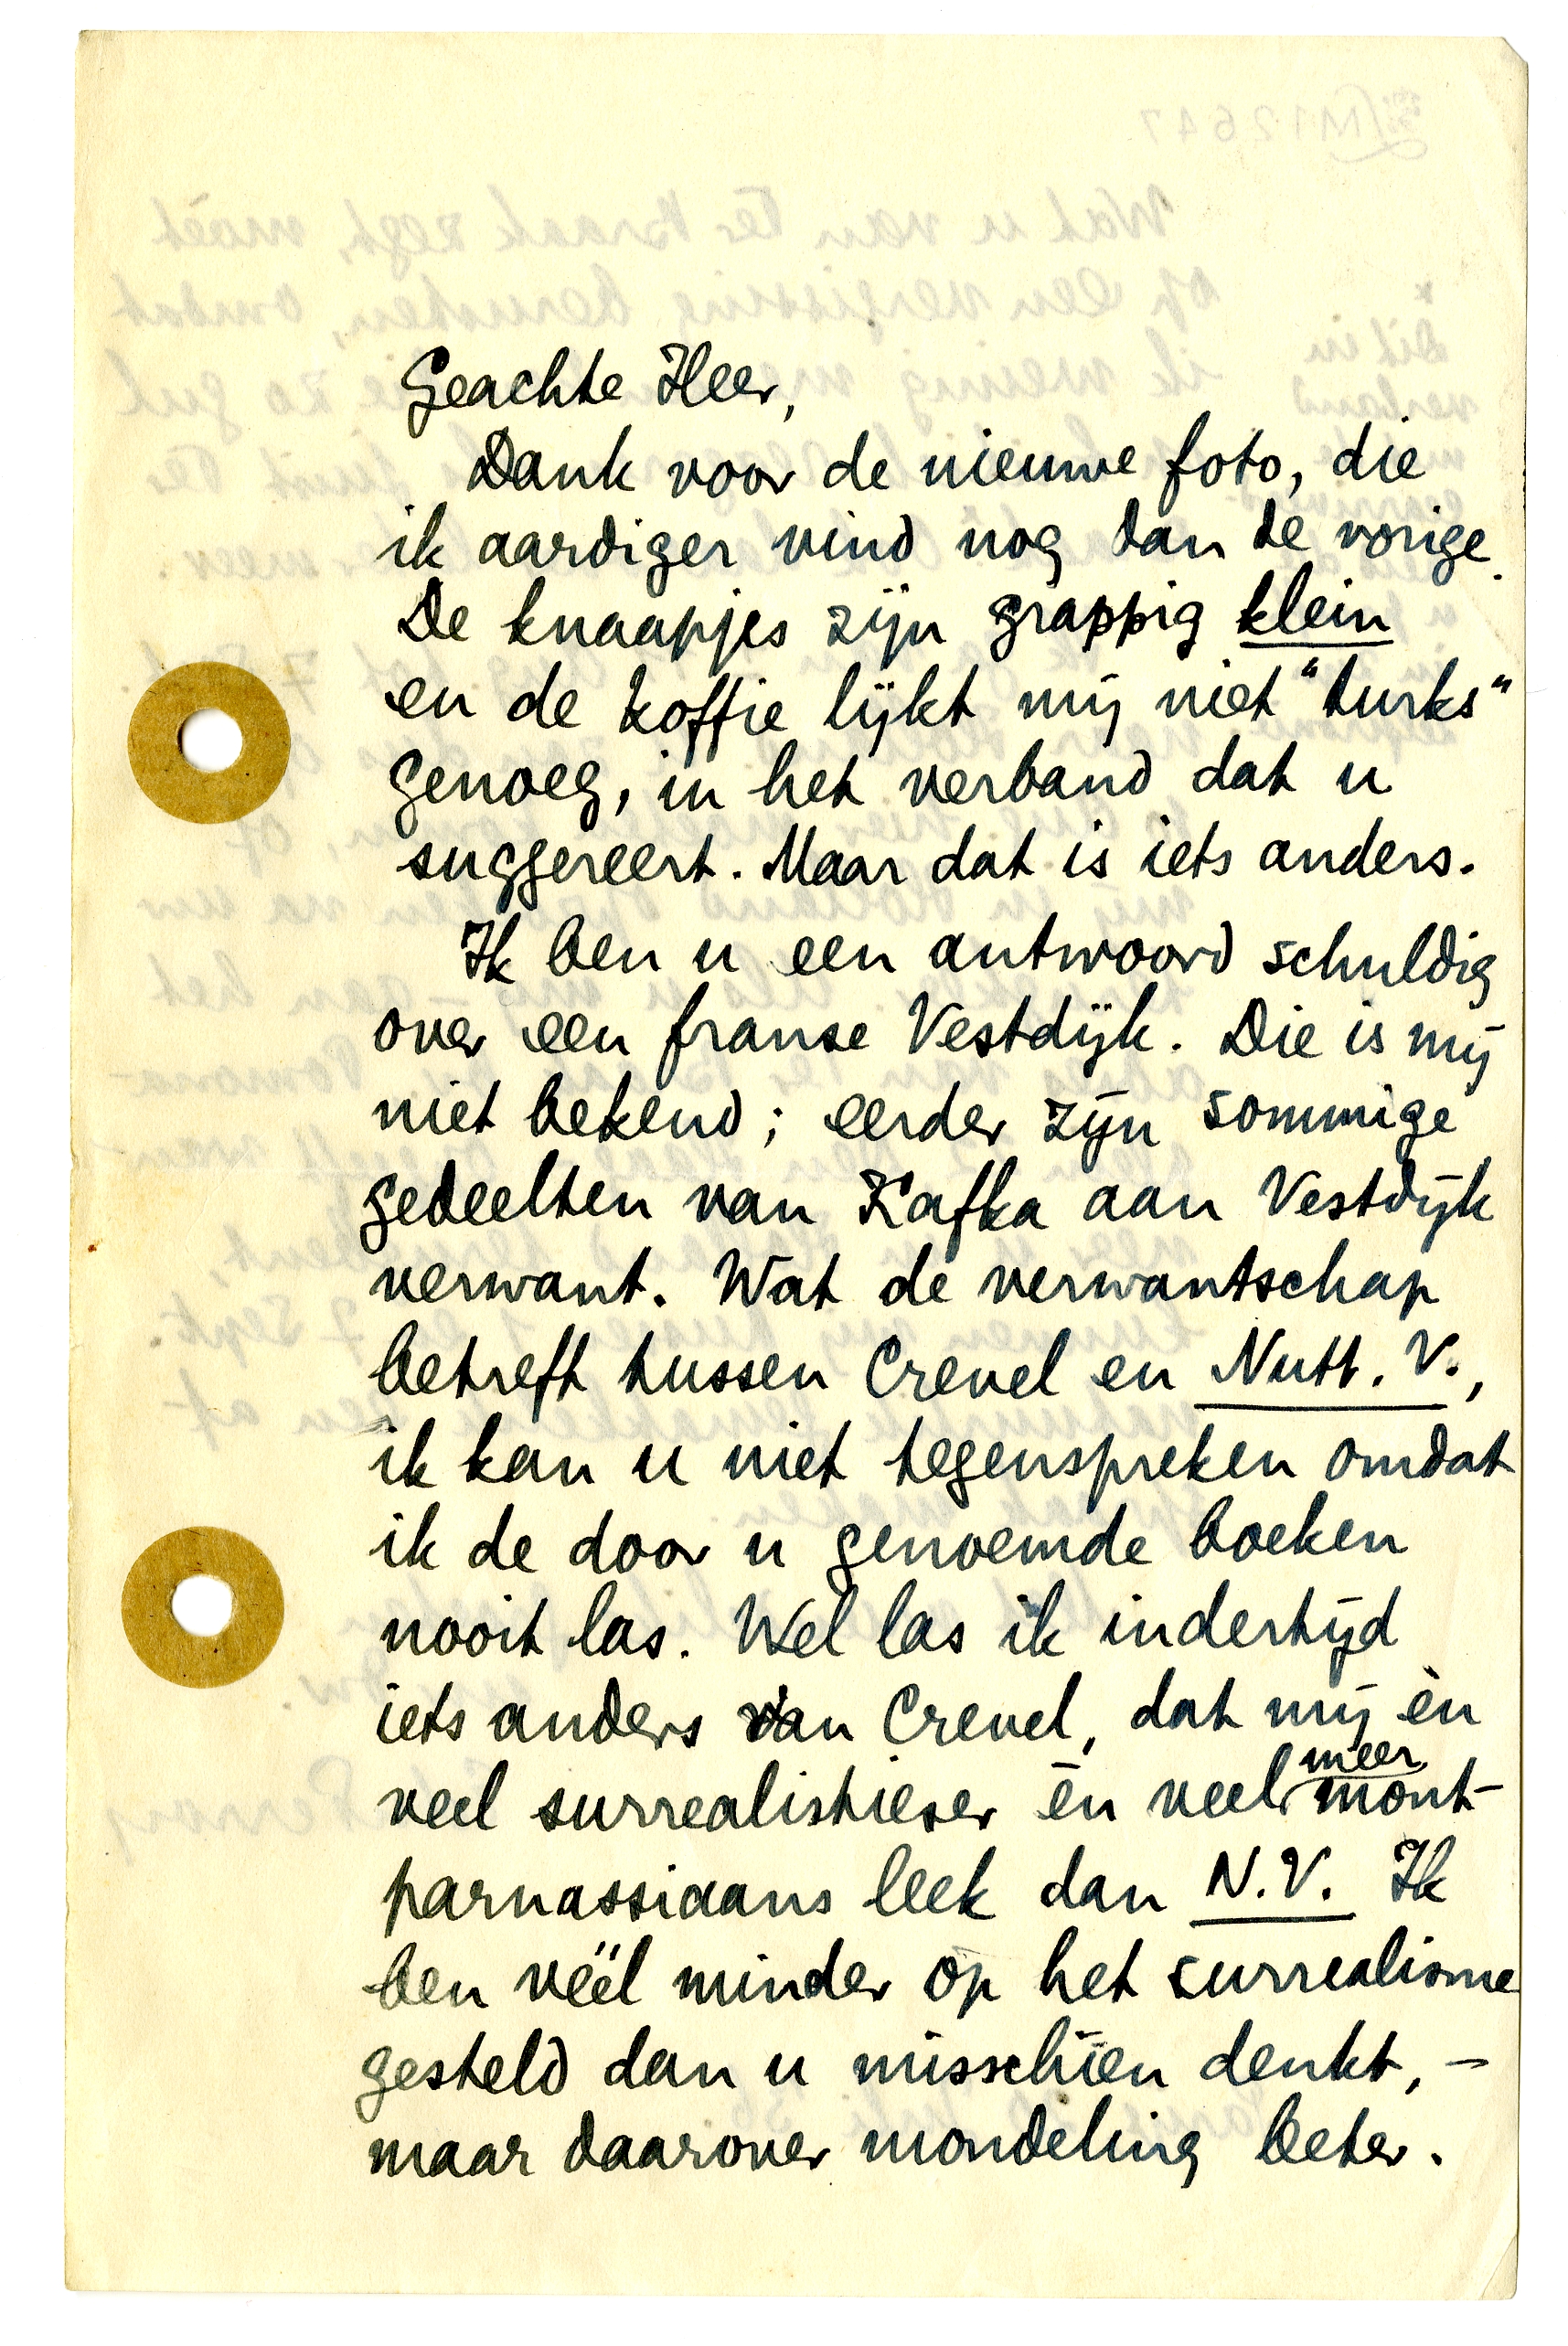 Geachte Heer,
Dank voor de nieuwe foto, die
ik aardiger vind nog dan de vorige.
De knaapjes zijn grappig klein
en de koffie lijkt mij niet "turks"
genoeg, in het verband dat u
suggereert. Maar dat is iets anders.
Ik ben u een antwoord schuldig
over een franse Vestdijk. Die is mij
niet bekend; eerder zijn sommige
gedeelten van Kafka aan Vestdijk
verwant. Wat de verwantschap
betreft tussen Crevel en Nutt. V.,
ik kan u niet tegenspreken omdat
ik de door u genoemde boeken
nooit las. Wel las ik indertijd
iets anders van Crevel, dat mij èn
veel surrealistieser èn veel meer mont-
parnassiaans leek dan N.V. Ik
ben véél minder op het surrealisme
gesteld dan u misschien denkt, –
maar daarover mondeling beter.